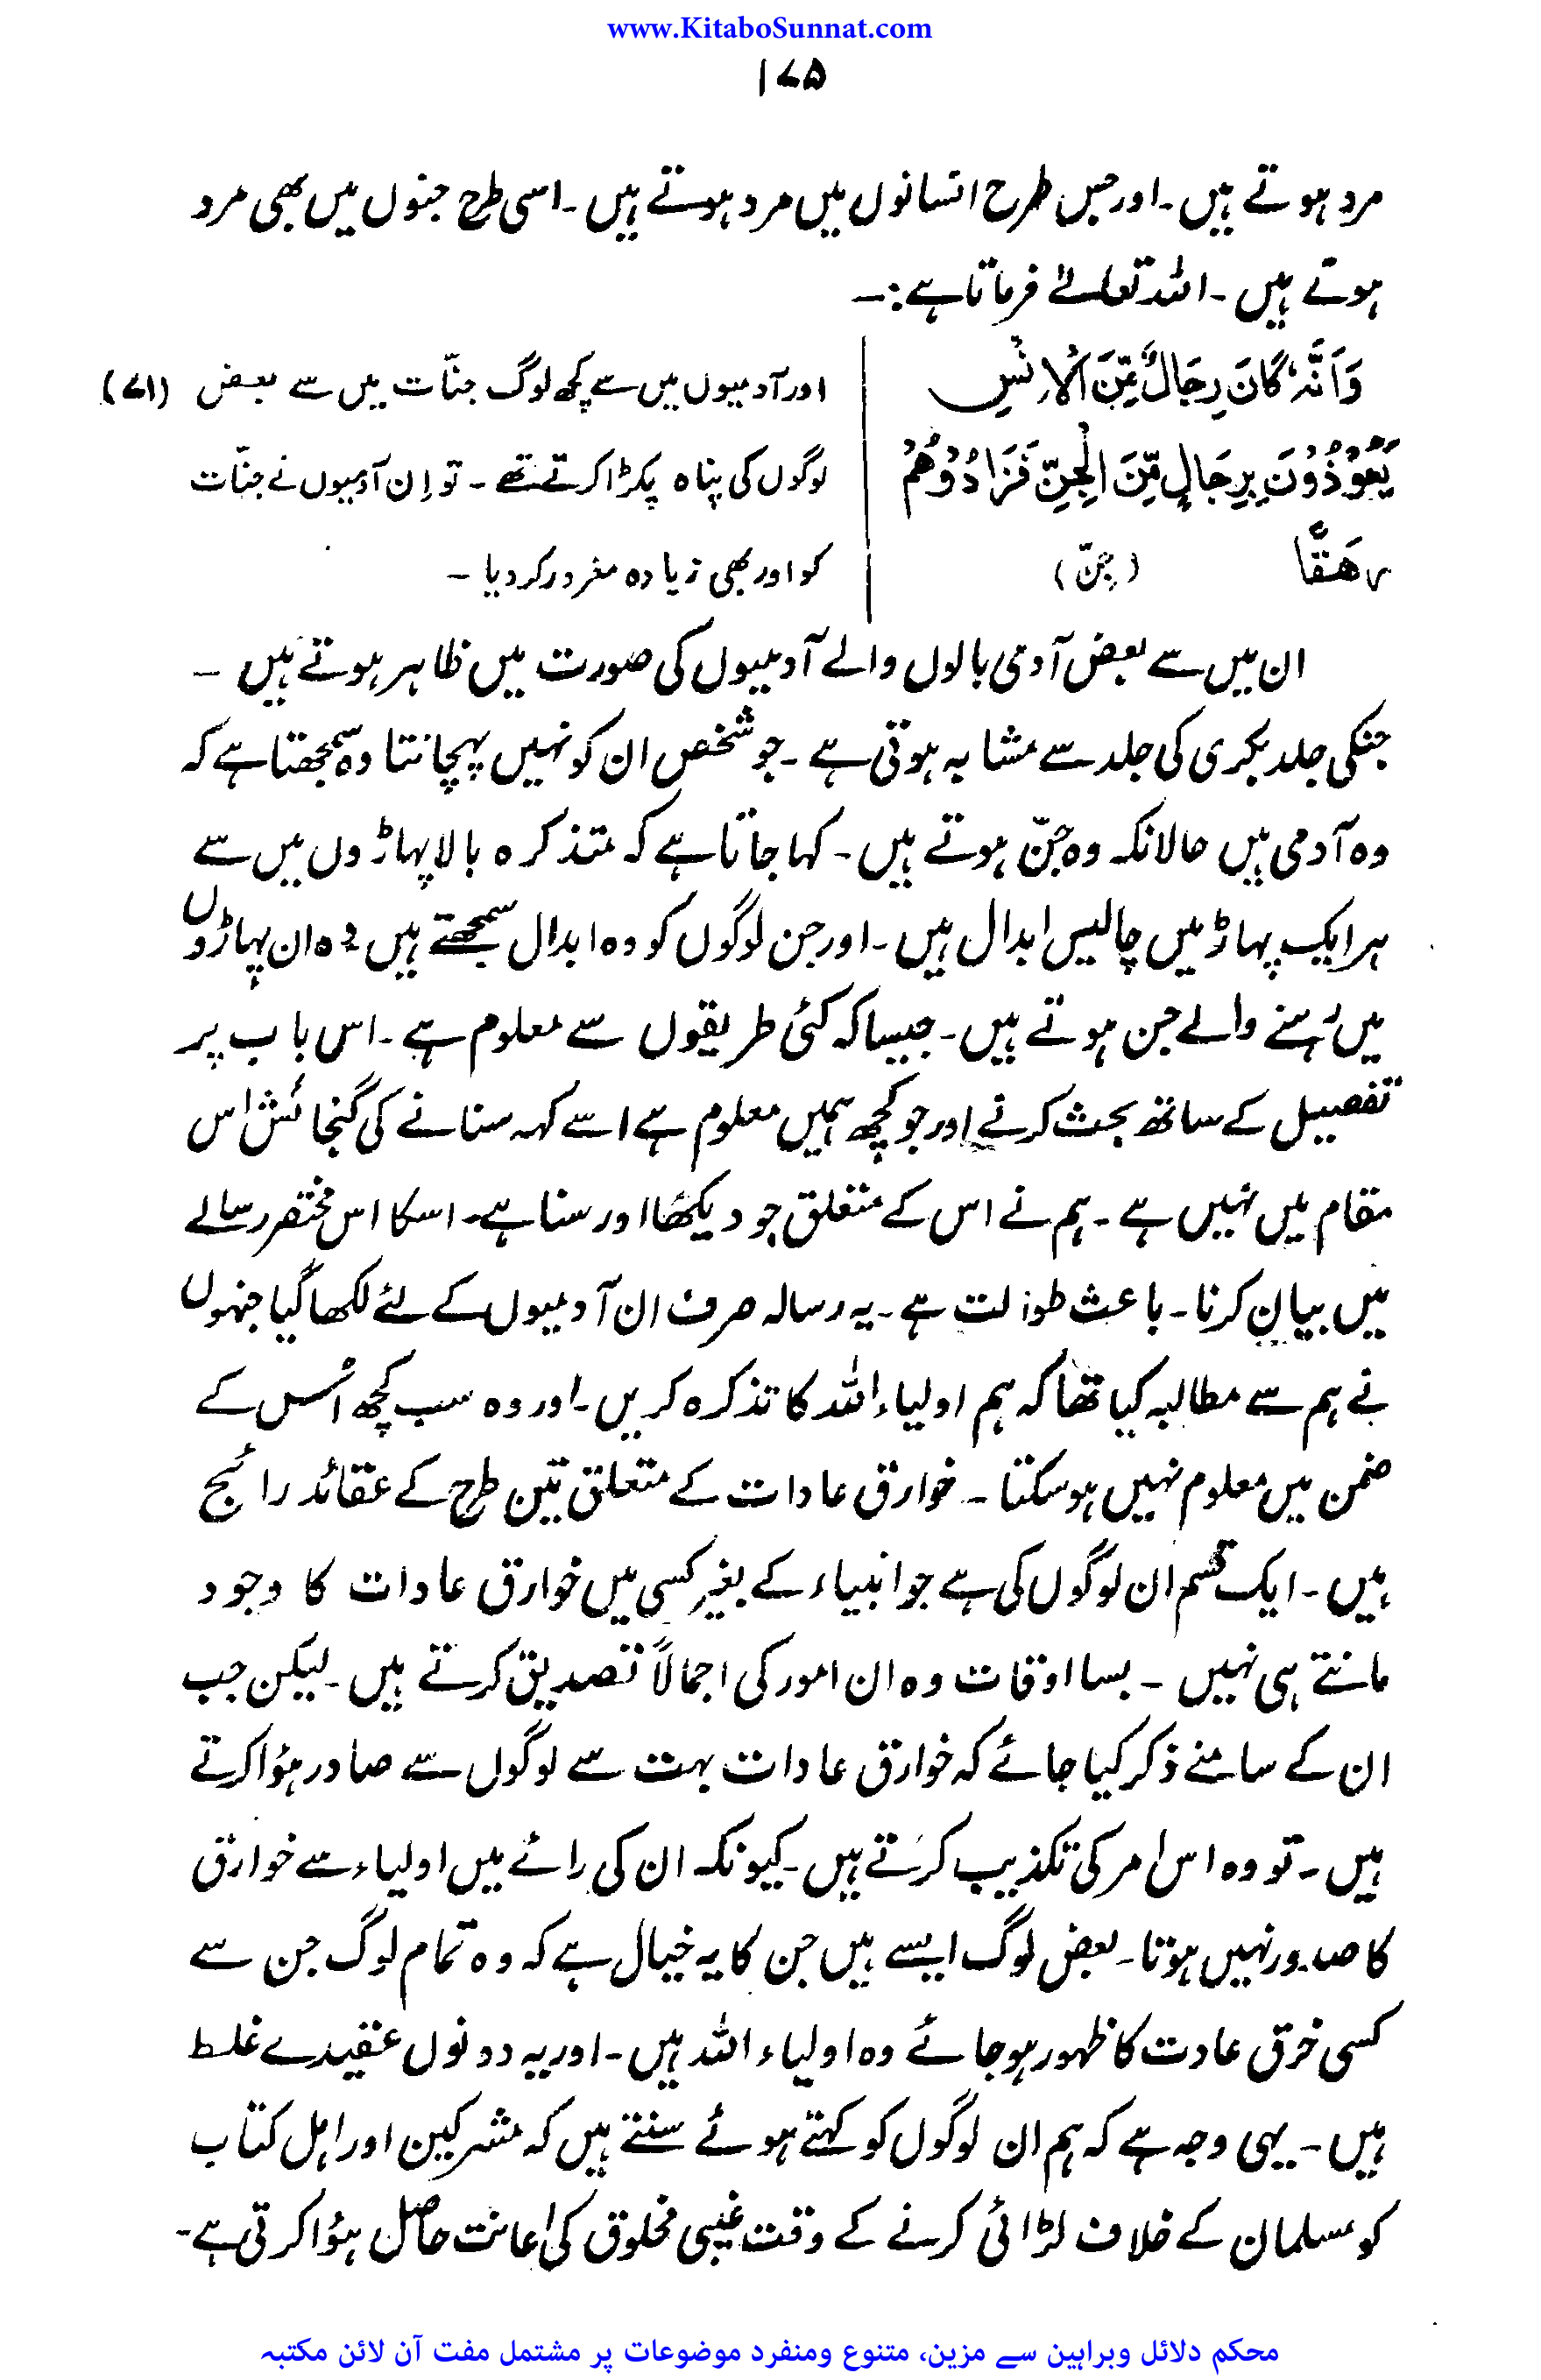 www.KitaboSunnat.com
۱۷۵
مرد ہوتے ہیں۔ اور جس طرح انسانوں میں مرد ہوتے ہیں۔ اسی طرح جنوں میں بھی مرد
ہوتے ہیں۔ اللہ تعالےٰ فرماتا ہے:۔
وَاَنَّہٗ کَانَ رِجَالٌ مِّنَ الْاِنْسِ
یَعُوْذُوْنَ بِرِجَالٍ مِّنَ الْجِنِّ فَزَادُوْھُمْ
رَھَقًا (جنّ)
اور آدمیوں میں سے کچھ لوگ جنّات میں سے بعض (۷۱)
لوگوں کی پناہ پکڑا کرتے تھے۔ تو اِن آدمیوں نے جنّات
کو اور بھی زیادہ مغرور کر دیا۔
ان میں سے بعض آدمی بالوں والے آدمیوں کی صورت میں ظاہر ہوتے ہیں۔
جنکی جلد بکری کی جلد سے مشابہ ہوتی ہے۔ جو شخص ان کو نہیں پہچانتا وہ سمجھتا ہے کہ
وہ آدمی ہیں حالانکہ وہ جنّ ہوتے ہیں۔ کہا جاتا ہے کہ متذکرہ بالا پہاڑوں میں سے
ہر ایک پہاڑ میں چالیس ابدال ہیں۔ اور جن لوگوں کو وہ ابدال سمجھتے ہیں وہ ان پہاڑوں
میں رہنے والے جن ہوتے ہیں۔ جیسا کہ کئی طریقوں سے معلوم ہے۔ اس باب پر
تفصیل کے ساتھ بحث کرنے اور جو کچھ ہمیں معلوم ہے اسے کہہ سنانے کی گنجائش اس
مقام میں نہیں ہے۔ ہم نے اس کے متعلق جو دیکھا اور سنا ہے۔ اسکا اس مختصر رسالے
میں بیان کرنا۔ باعث طوالت ہے۔ یہ رسالہ صرف ان آدمیوں کے لئے لکھا گیا جنہوں
نے ہم سے مطالبہ کیا تھا کہ ہم اولیاء اللہ کا تذکرہ کریں۔ اور وہ سب کچھ اس کے
ضمن میں معلوم نہیں ہو سکتا۔ خوارق عادات کے متعلق تین طرح کے عقائد رائج
ہیں۔ ایک قسم ان لوگوں کی ہے جو انبیاء کے بغیر کسی میں خوارق عادات کا وجود
مانتے ہی نہیں۔ بسا اوقات وہ ان امور کی اجمالاً تصدیق کرتے ہیں۔ لیکن جب
ان کے سامنے ذکر کیا جائے کہ خوارق عادات بہت سے لوگوں سے صادر ہؤا کرتے
ہیں۔ تو وہ اس امر کی تکذیب کرتے ہیں۔ کیونکہ ان کی رائے میں اولیاء سے خوارق
کا صدور نہیں ہوتا۔ بعض لوگ ایسے ہیں جن کا یہ خیال ہے کہ وہ تمام لوگ جن سے
کسی خرق عادت کا ظہور ہو جائے وہ اولیاء اللہ ہیں۔ اور یہ دونوں عقیدے غلط
ہیں۔ یہی وجہ ہے کہ ہم ان لوگوں کو کہتے ہوئے سنتے ہیں کہ مشرکین اور اہل کتاب
کو مسلمان کے خلاف لڑائی کرنے کے وقت غیبی مخلوق کی اعانت حاصل ہؤا کرتی ہے۔
محکم دلائل وبراہین سے مزین، متنوع ومنفرد موضوعات پر مشتمل مفت آن لائن مکتبہ